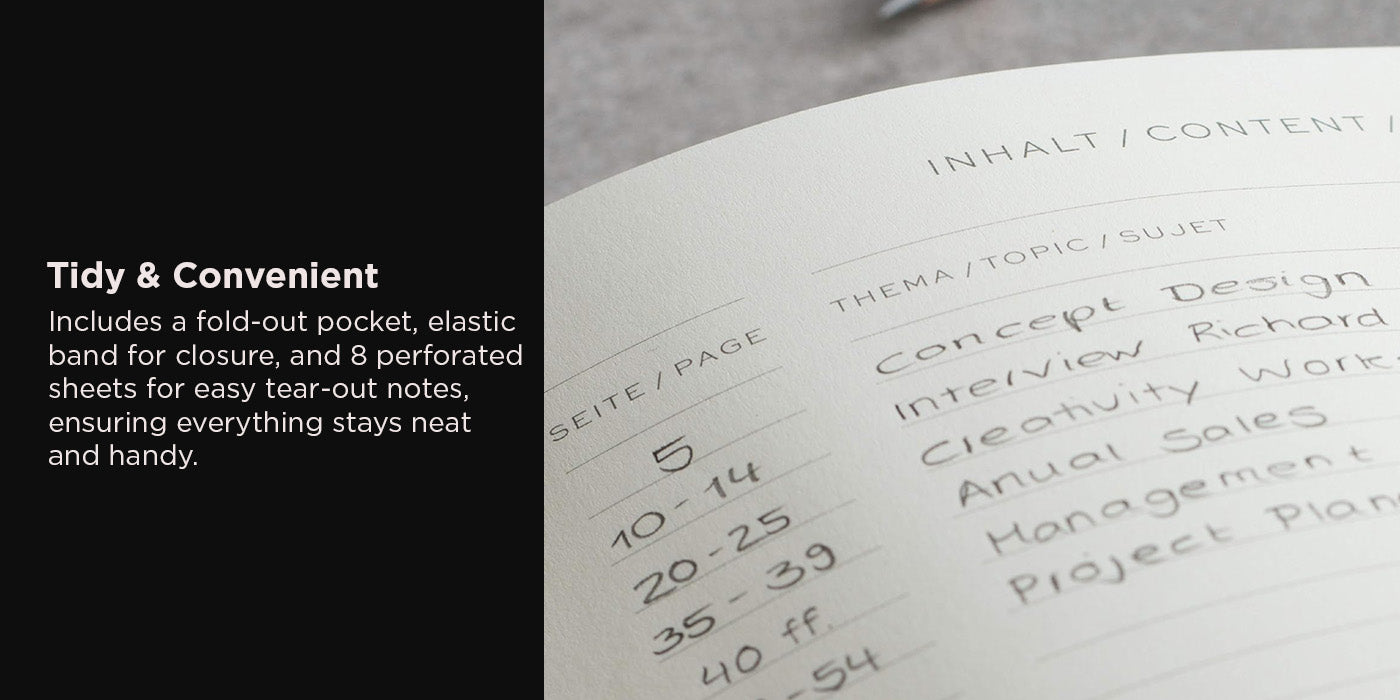 Tidy & Convenient
Includes a fold-out pocket, elastic
band for closure, and 8 perforated
sheets for easy tear-out notes,
ensuring everything stays neat
and handy.
INHALT / CONTENT /
SEITE / PAGE THEMA / TOPIC / SUJET
5 Concept Design
10-14 Interview Richard
20-25 Creativity Work
35-39 Anual Sales
40 ff. Management
-54 Project Plan